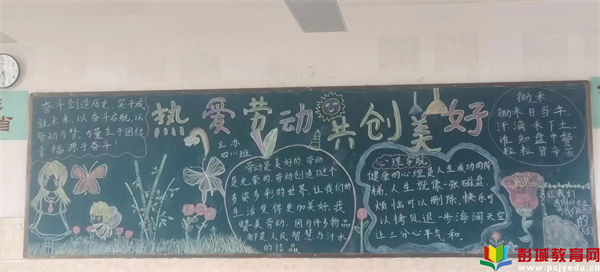 热爱劳动共创美好
奋斗创造历史,实干成
就未来,以奋斗启航,以
劳动为梦,力量生于团结
幸福源于奋斗!
主办
四(1)班
劳动是美好的,劳动
是光荣的,劳动创造这个
多姿多彩的世界,让我们的
生活变得更加美好,我
赞美劳动,因为许多物品
都是人民智慧与汗水
的结晶
心理导航
健康的心理是人生成功的阶
梯,人生就像一张磁盘,
烦恼可以删除,快乐可
以拷贝,退一步海阔天空
让三分心平气和。
锄禾
锄禾日当午
汗滴禾下土
谁知盘中餐
粒粒皆辛苦
省
彭城教育网
www.pcjyedu.cn